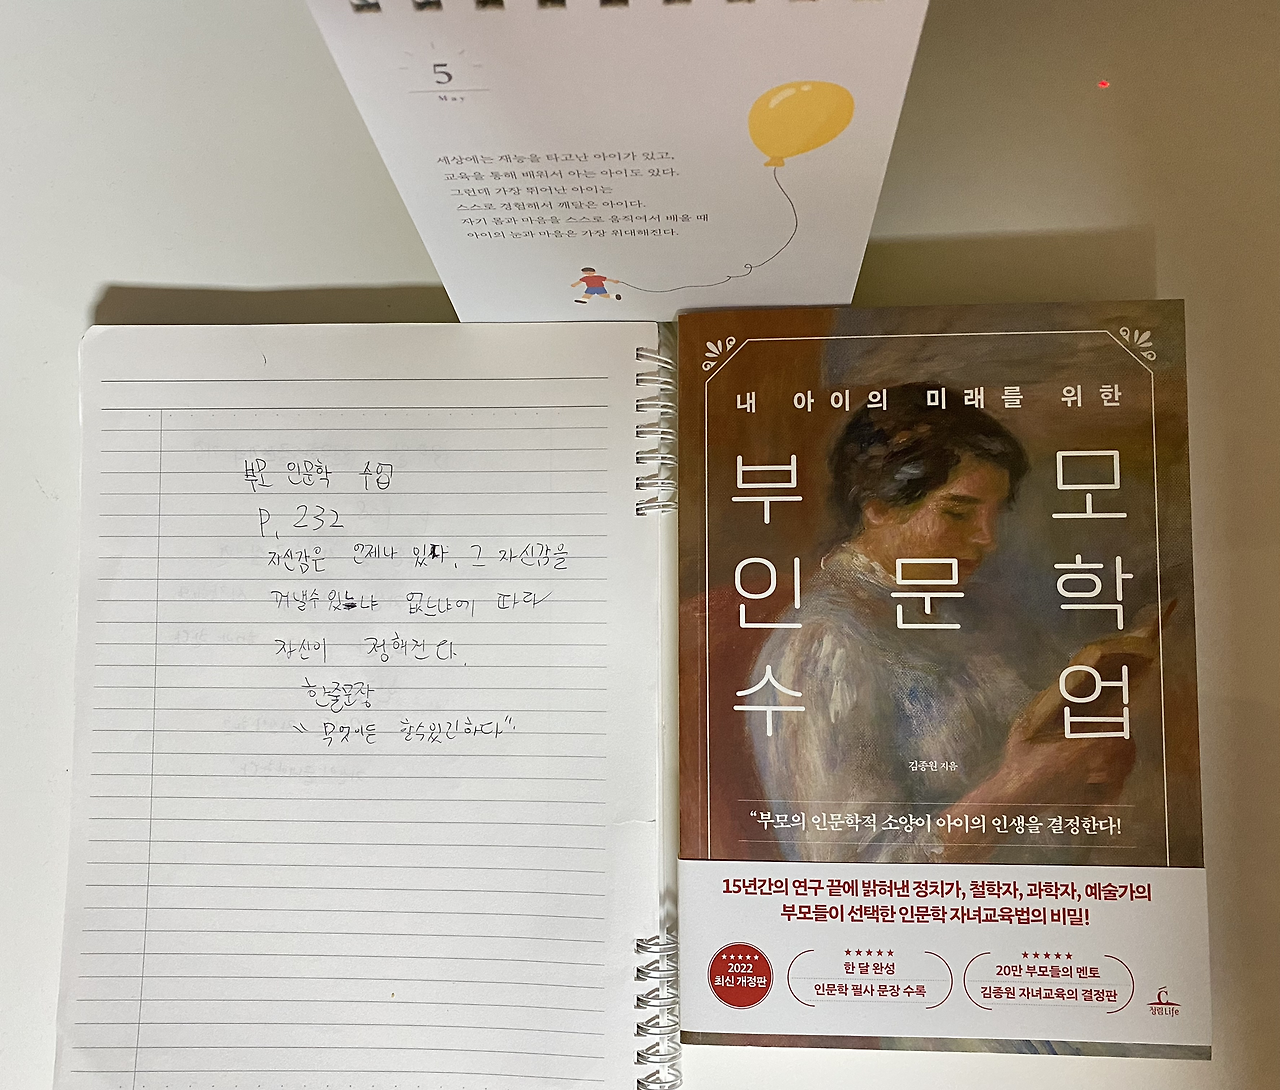 5
May
세상에는 재능을 타고난 아이가 있고,
교육을 통해 배워서 아는 아이도 있다.
그런데 가장 뛰어난 아이는
스스로 경험해서 깨달은 아이다.
자기 몸과 마음을 스스로 움직여서 배울 때
아이의 눈과 마음은 가장 위대해진다.
부모 인문학 수업
P. 232
자신감은 언제나 있다. 그 자신감을
꺼낼수 있느냐 없느냐에 따라
자신이 정해진다.
한줄문장
"무엇이든 할수있긴하다".
내 아이의 미래를 위한
부모
인문학
수업
김종원 지음
“부모의 인문학적 소양이 아이의 인생을 결정한다!
15년간의 연구 끝에 밝혀낸 정치가, 철학자, 과학자, 예술가의
부모들이 선택한 인문학 자녀교육법의 비밀!
2022
최신 개정판
한 달 완성
인문학 필사 문장 수록
20만 부모들의 멘토
김종원 자녀교육의 결정판
청림Life